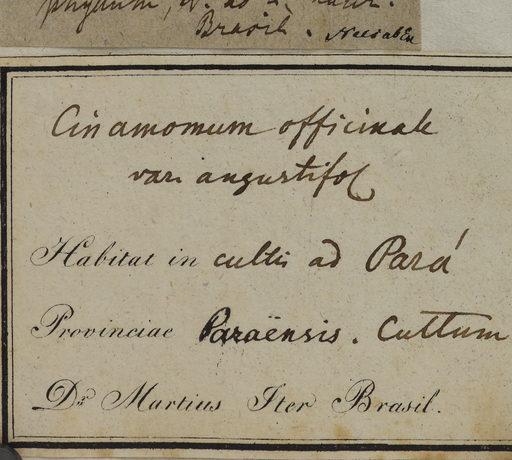 Brasil. Nees ab Es
Cinamomum officinale
var. angustifol
Habitat in cultis ad Pará
Provinciae Paraënsis. Cultum
Dr. Martius Iter Brasil.